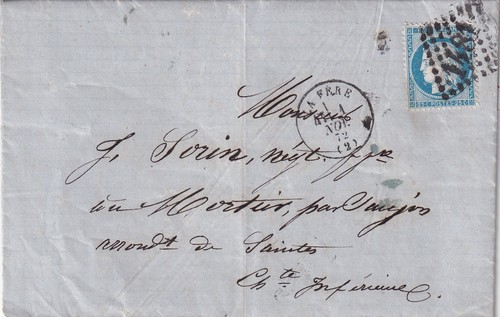 LA FERE
1
NOV.
72
(2)
25 C. POSTES 25 C.
Monsieur
J. Sorin, négt.
au Mortier, par Saujon
arrondt de Saintes
Chte Inférieure.